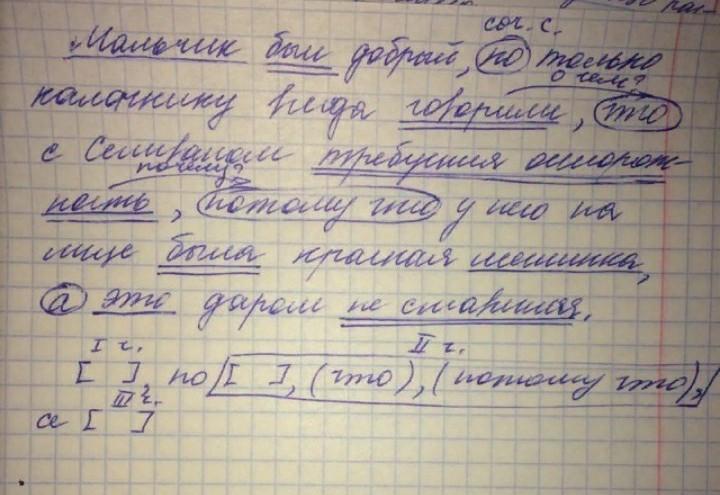 соч. с.
Мальчик был добрый, но только
о чём?
калачнику всегда говорили, что
с Селиваном требуется осторож-
почему?
ность, потому что у него на
лице была красная метинка,
а это даром не ставится.
I ч. II ч.
[ ] но [[ ], (что), (потому что),]
III ч.
а [ ]